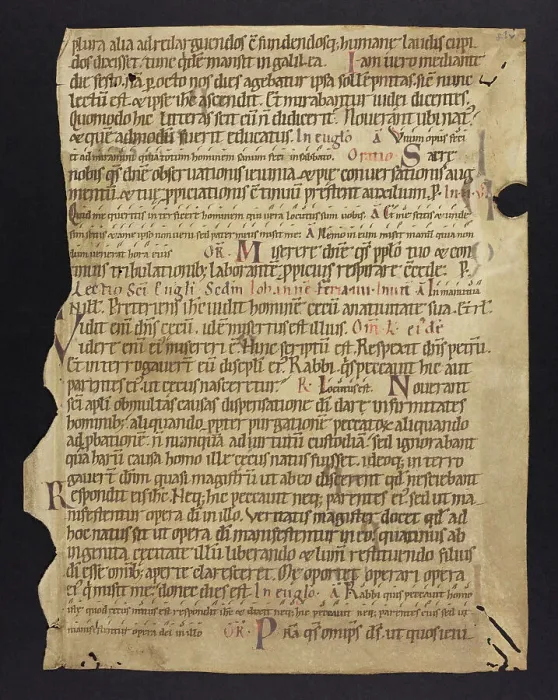 plura alia ad redarguendos & fundendosq; humane laudis cupi
dos dixisset. tunc qdē mansit in galilea. Iam vero mediante
die festo. octo nos dies agebatur ipsa sollēpnitas. sic nunc
lectū est & ipse ihc ascendit. Et mirabantur iudei dicentes.
Quomodo hic litteras scit cū n didicerit. Noverant ubi nat
& que admodū fuerit educatus. In euglo A Vnum opus feci
et admiramini quia totum hominem sanum feci in sabbato. Oratio Sacre
nobis qs dne observationis ieiunia & pie conversationis aug
mentū & tue ppiciationis c tinuū prestent auxilium. P. In
Quid me queritis interficere hominem qui vera locutus sum vobis. A Et me scitis & unde
sim scitis & a me ipso non veni sed pater meus misit me. A Nemo in eum misit manū quia non
dum venerat hora eius OR. Miserere dne qs pplo tuo & con
tinuis tribulationib; laborantē ppicius respirare ccede. P.
Lectio Sci Eugli Secdm Iohannē Feria IIII
Preteriens ihc vidit hominē cecū a nativitate sua. Et rl.
Vidit enī dns cecū. idē misertus est illius.
videre enī ei misereri ē. Hinc scriptū est. Respexit dns petrū.
Et interrogaverī eū discipli ei. Rabbi. qs peccavit hic aut
parentes ei. ut cecus nasceretur. R. Locutus est. Noverant
sci apli ob multas causas dispensatione di dari infirmitates
hominib; aliquando ppter purgatione peccatoꝝ aliquando
ad pbationē. n nunquā ad virtutū custodiā sed ignorabant
quā harū causa homo ille cecus natus fuisset. ideoq; interro
gaverī dnm quasi magistrū ut ab eo discerent qd nesciebant
Respondit eis ihc. Neq; hic peccavit neq; parentes ei sed ut ma
nifestentur opera di in illo. Veritatis magister docet qd ad
hoc natus sit ut opera di manifestentur in eo. quatinus ab
ingenita cecitate illū liberando & lumī restituendo filius
di esse omib; aperte claresceret. Me oportet operari opera
ei q misit me. donec dies est. In euglo. A Rabbi quis peccavit homo
iste quod cecus natus est. respondit ihc & dixit neq; hic peccavit neq; parentes eius sed ut
manifestentur opera dei in illo OR. Pra qs omps ds. ut quos ieiu